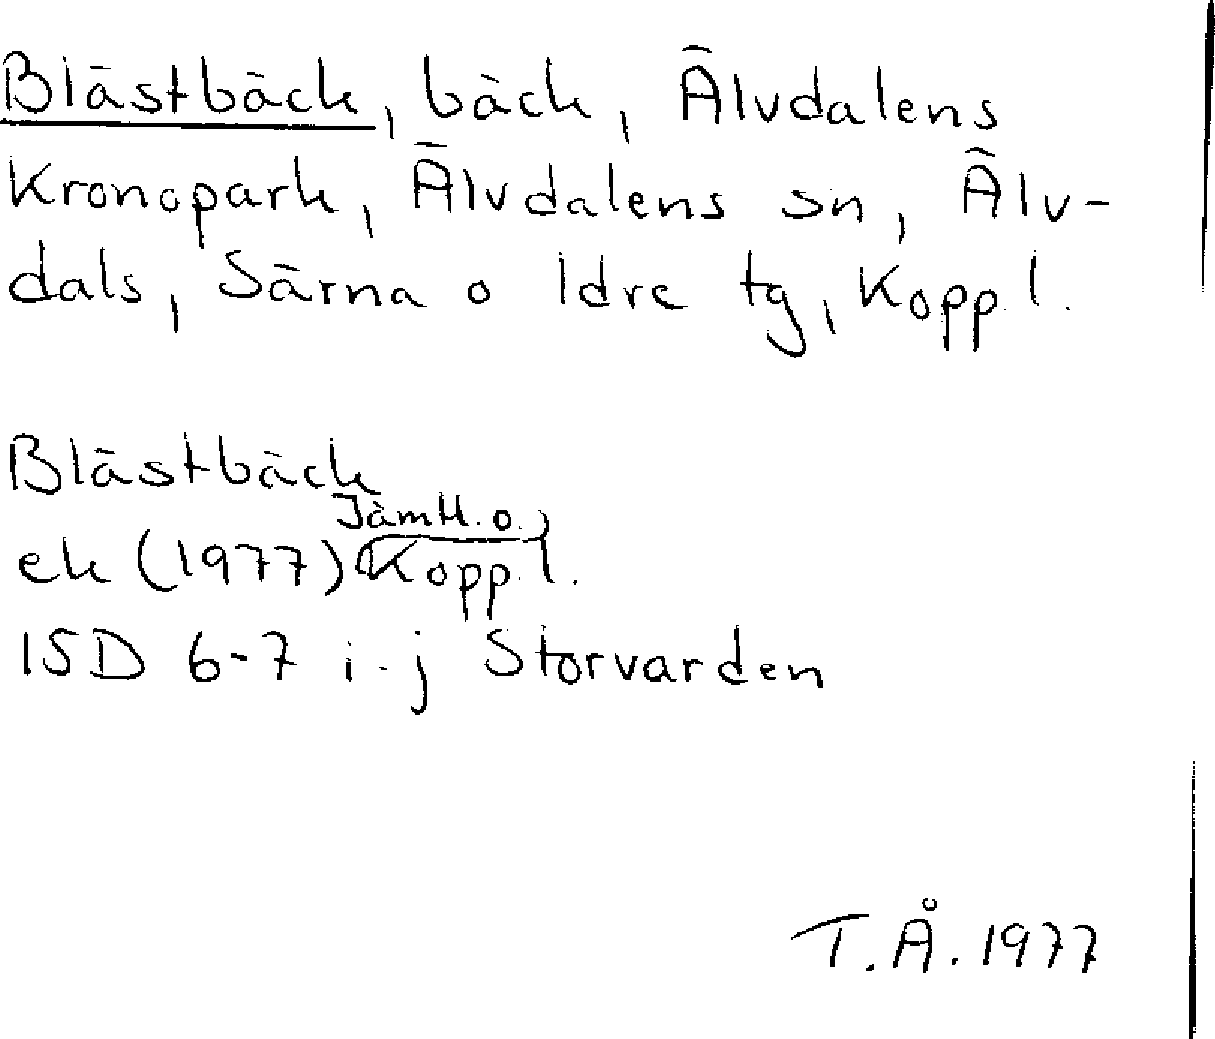 Blästbäck, bäck, Älvdalens
Kronopark, Älvdalens sn, Älv-
dals, Särna o Idre tg, Kopp l.
Blästbäck
Jämtl. o.
ek (1977) Kopp. l.
15D 6-7 i-j Storvarden
T.Å. 1977